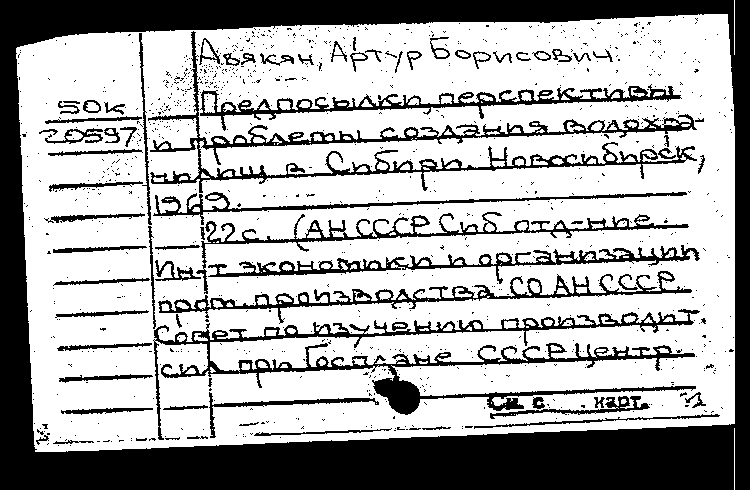 Авакян, Артур Борисович.
50к
20597
Предпосылки, перспективы
и проблемы создания водохра-
нилищ в Сибири. Новосибирск,
1969.
22с. (АН СССР Сиб отд-ние.
Ин-т экономики и организации
пром. производства СО АН СССР.
Совет по изучению производит.
сил при Госплане СССР. Центр.
См. с карт.